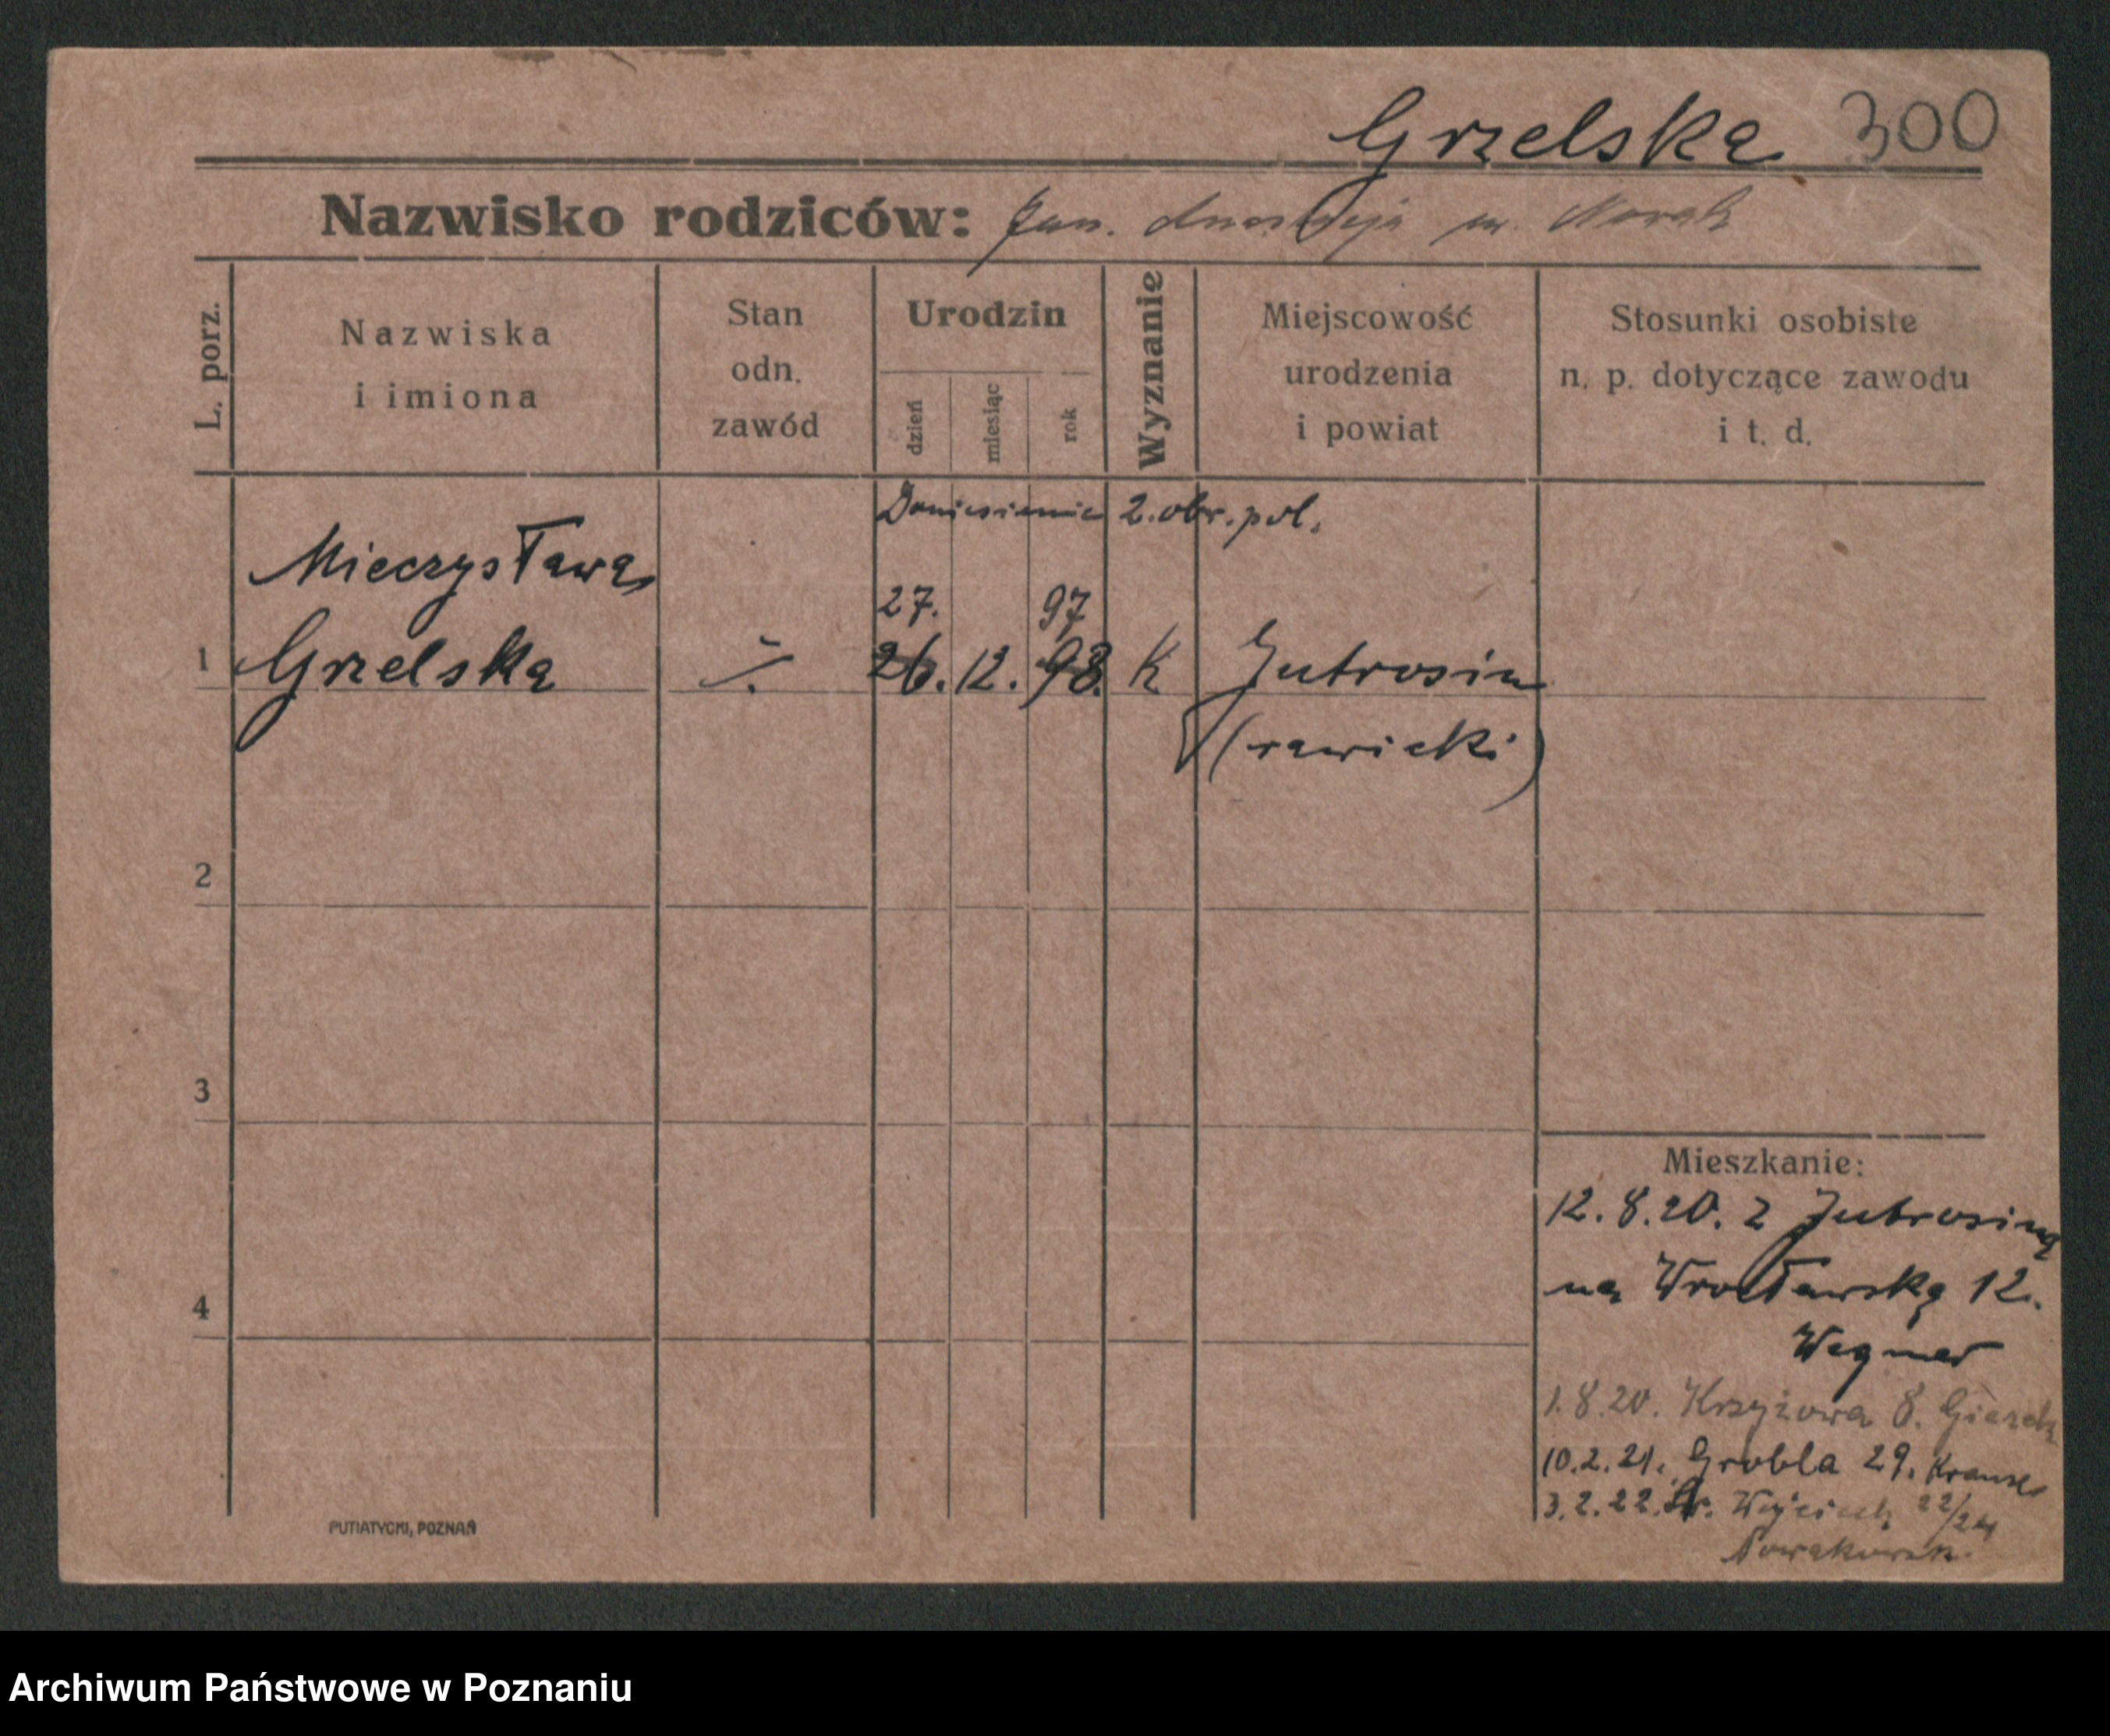 Grzelska 300
Nazwisko rodziców: Jan. Anastazja ur. Nowak
L. porz.
Nazwiska
i imiona
Stan
odn.
zawód
Urodzin
dzień
miesiąc
rok
Wyznanie
Miejscowość
urodzenia
i powiat
Stosunki osobiste
n. p. dotyczące zawodu
i t. d.
Doniesienie 2. obr. pol.
Mieczysława
27. 97
1 Grzelska ÷ 26. 12. 98. K Jutrosin
(rawicki)
2
3
4
Mieszkanie:
12.8.20. z Jutrosina
na Wrocławską 12.
Wegner
1.8.20. Krzyżowa 8.
10.2.21. Grobla 29. Krause
3.2.22. Św. Wojciech 22/24
Nowakowsk.
PUTIATYCKI, POZNAŃ
Archiwum Państwowe w Poznaniu